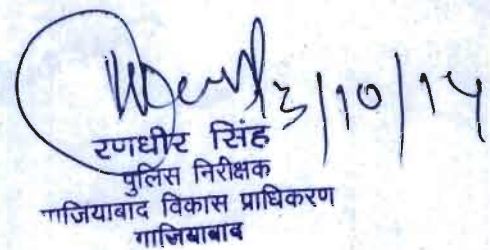 3/10/14
रणधीर सिंह
पुलिस निरीक्षक
गाजियाबाद विकास प्राधिकरण
गाजियाबाद